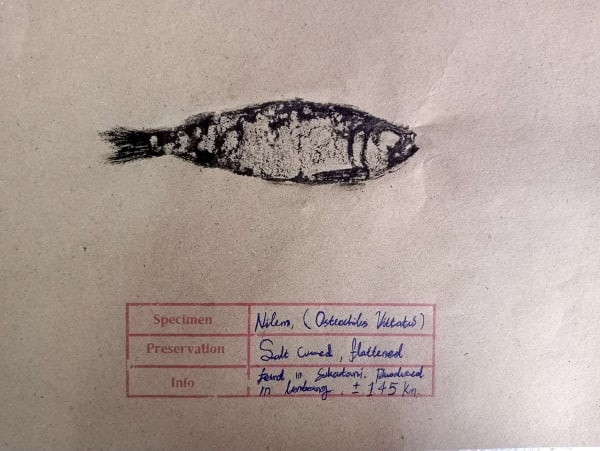 Specimen
Nilem, (Osteochilus Vittatus)
Preservation
Salt Cured, flattened
Info
found in Sukatani. Produced
in Lembang. ± 145 Km.